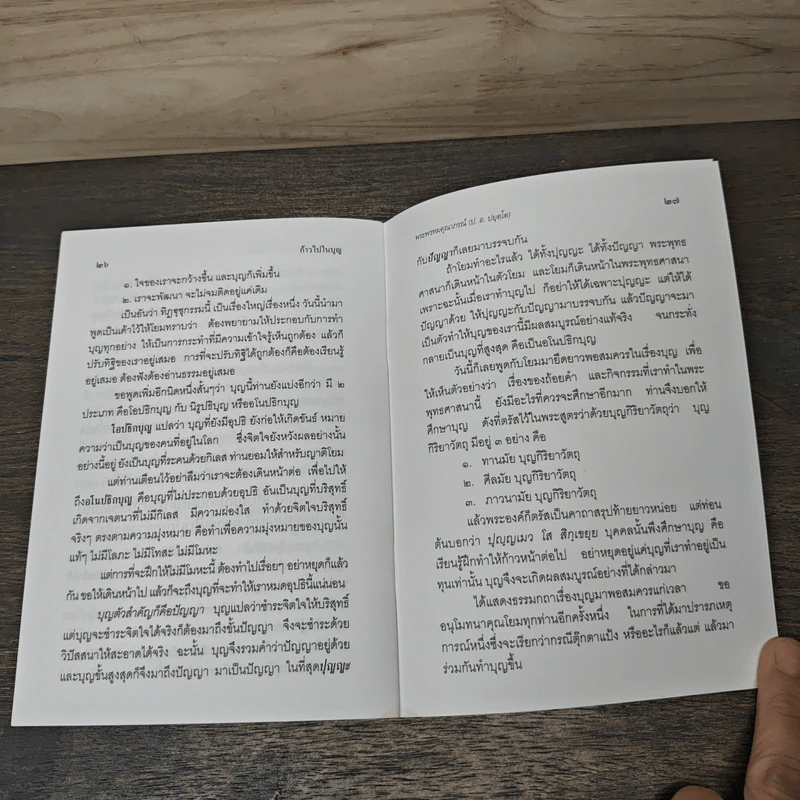 ๒๖
ก้าวไปในบุญ
๑. ใจของเราจะกว้างขึ้น และบุญก็เพิ่มขึ้น
๒. เราจะพัฒนา จะไม่จมติดอยู่แค่เดิม
เป็นอันว่า ทิฏฐุชุกรรมนี้ เป็นเรื่องใหญ่เรื่องหนึ่ง วันนี้นำมา
พูดเป็นเค้าไว้ให้โยมทราบว่า ต้องพยายามให้ประกอบกับการทำ
บุญทุกอย่าง ให้เป็นการกระทำที่มีความเข้าใจรู้เห็นถูกต้อง แล้วก็
ปรับทิฐิของเราอยู่เสมอ การที่จะปรับทิฐิได้ถูกต้องก็คือต้องเรียนรู้
อยู่เสมอ ต้องฟังต้องอ่านธรรมอยู่เสมอ
ขอพูดเพิ่มอีกนิดหนึ่งสั้นๆว่า บุญนี้ท่านยังแบ่งอีกว่า มี ๒
ประเภท คือโอปธิกบุญ กับ นิรูปธิบุญ หรืออโนปธิกบุญ
โอปธิกบุญ แปลว่า บุญที่ยังมีอุปธิ ยังก่อให้เกิดขันธ์ หมาย
ความว่าเป็นบุญของคนที่อยู่ในโลก ซึ่งจิตใจยังหวังผลอย่างนั้น
อย่างนี้อยู่ ยังเป็นบุญที่ระคนด้วยกิเลส ท่านยอมให้สำหรับญาติโยม
แต่ท่านเตือนไว้อย่าลืมว่าเราจะต้องเดินหน้าต่อ เพื่อไปให้
ถึงอโนปธิกบุญ คือบุญที่ไม่ประกอบด้วยอุปธิ อันเป็นบุญที่บริสุทธิ์
เกิดจากเจตนาที่ไม่มีกิเลส มีความผ่องใส ทำด้วยจิตใจบริสุทธิ์
จริงๆ ตรงตามความมุ่งหมาย คือทำเพื่อความมุ่งหมายของบุญนั้น
แท้ๆ ไม่มีโลภะ ไม่มีโทสะ ไม่มีโมหะ
แต่การที่จะฝึกให้ไม่มีโมหะนี้ ต้องทำไปเรื่อยๆ อย่าหยุดก็แล้ว
กัน ขอให้เดินหน้าไป แล้วก็จะถึงบุญที่จะทำให้เราหมดอุปธินี้แน่นอน
บุญตัวสำคัญก็คือปัญญา บุญแปลว่าชำระจิตใจให้บริสุทธิ์
แต่บุญจะชำระจิตใจได้จริงก็ต้องมาถึงขั้นปัญญา จึงจะชำระด้วย
วิปัสสนาให้สะอาดได้จริง ฉะนั้น บุญจึงรวมคำว่าปัญญาอยู่ด้วย
และบุญขั้นสูงสุดก็จึงมาถึงปัญญา มาเป็นปัญญา ในที่สุดปุญญะ
พระพรหมคุณาภรณ์ (ป. อ. ปยุตฺโต)
๒๗
กับปัญญาก็เลยมาบรรจบกัน
ถ้าโยมทำอะไรแล้ว ได้ทั้งปุญญะ ได้ทั้งปัญญา พระพุทธ
ศาสนาก็เดินหน้าในตัวโยม และโยมก็เดินหน้าในพระพุทธศาสนา
เพราะฉะนั้นเมื่อเราทำบุญไป ก็อย่าให้ได้เฉพาะปุญญะ แต่ให้ได้
ปัญญาด้วย ให้ปุญญะกับปัญญามาบรรจบกัน แล้วปัญญาจะมา
เป็นตัวทำให้บุญของเรานี้มีผลสมบูรณ์อย่างแท้จริง จนกระทั่ง
กลายเป็นบุญที่สูงสุด คือเป็นอโนปธิกบุญ
วันนี้ก็เลยพูดกับโยมมายืดยาวพอสมควรในเรื่องบุญ เพื่อ
ให้เห็นตัวอย่างว่า เรื่องของถ้อยคำ และกิจกรรมที่เราทำในพระ
พุทธศาสนานี้ ยังมีอะไรที่ควรจะศึกษาอีกมาก ท่านจึงบอกให้
ศึกษาบุญ ดังที่ตรัสไว้ในพระสูตรว่าด้วยบุญกิริยาวัตถุว่า บุญ
กิริยาวัตถุ มีอยู่ ๓ อย่าง คือ
๑. ทานมัย บุญกิริยาวัตถุ
๒. ศีลมัย บุญกิริยาวัตถุ
๓. ภาวนามัย บุญกิริยาวัตถุ
แล้วพระองค์ก็ตรัสเป็นคาถาสรุปท้ายยาวหน่อย แต่ท่อน
ต้นบอกว่า ปุญฺญเมว โส สิกฺเขยฺย บุคคลนั้นพึงศึกษาบุญ คือ
เรียนรู้ฝึกทำให้ก้าวหน้าต่อไป อย่าหยุดอยู่แค่บุญที่เราทำอยู่เป็น
ทุนเท่านั้น บุญจึงจะเกิดผลสมบูรณ์อย่างที่ได้กล่าวมา
ได้แสดงธรรมกถาเรื่องบุญมาพอสมควรแก่เวลา ขอ
อนุโมทนาคุณโยมทุกท่านอีกครั้งหนึ่ง ในการที่ได้มาปรารภเหตุ
การณ์หนึ่งซึ่งจะเรียกว่ากรณีตุ๊กตาแป้ง หรืออะไรก็แล้วแต่ แล้วมา
ร่วมกันทำบุญขึ้น